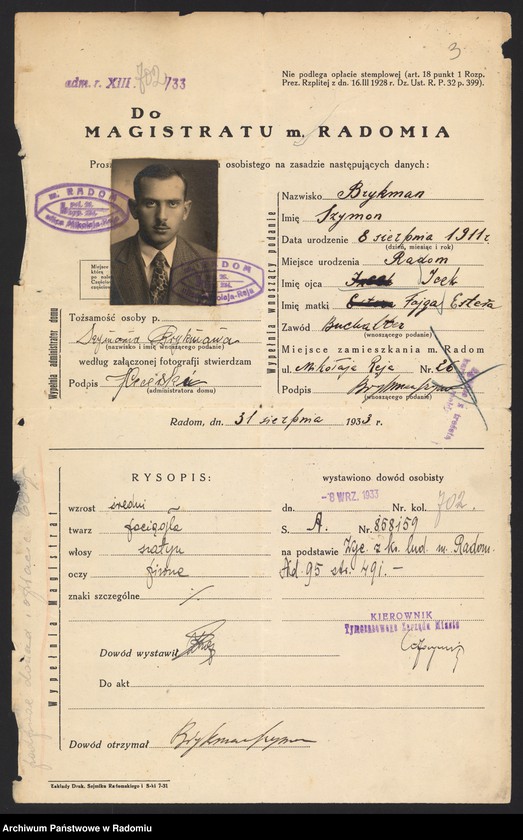 3
adm. r. XIII. 702/33
Nie podlega opłacie stemplowej (art. 18 punkt 1 Rozp.
Prez. Rzplitej z dn. 16.III 1928 r. Dz. Ust. R. P. 32 p. 399).
Do
MAGISTRATU m. RADOMIA
osobistego na zasadzie następujących danych:
m. RADOM
ulica Mikołaja-Reja
Wypełnia wnoszący podanie
Nazwisko Brykman
Imię Szymon
Data urodzenie 8 sierpnia 1911 r
(dzień, miesiąc i rok)
Miejsce urodzenia Radom
Imię ojca Icek
Imię matki Fajga Estera
Zawód Buchalter
(wnoszącego podanie)
Miejsce zamieszkania m. Radom
ul. Mikołaja Reja Nr. 26
Podpis Brykman Szymon
(wnoszącego podanie)
Wypełnia administrator domu
Tożsamość osoby p.
Szymona Brykmana
(nazwisko i imię wnoszącego podanie)
według załączonej fotografii stwierdzam
Podpis
(administratora domu)
Radom, dn. 31 sierpnia 1933 r.
Wypełnia Magistrat
RYSOPIS:
wzrost średni
twarz pociągła
włosy szatyn
oczy piwne
znaki szczególne
wystawiono dowód osobisty
dn. -8 WRZ. 1933 Nr. kol. 702.
S. A. Nr. 858159
na podstawie Wyc. z ks. lud. m. Radom.
95 str. 491.-
KIEROWNIK
Tymczasowego Zarządu Miasta
Dowód wystawił
Do akt
Dowód otrzymał Brykman Szymon
Zakłady Druk. Sejmiku Radomskiego i S-ki 7-31
Archiwum Państwowe w Radomiu